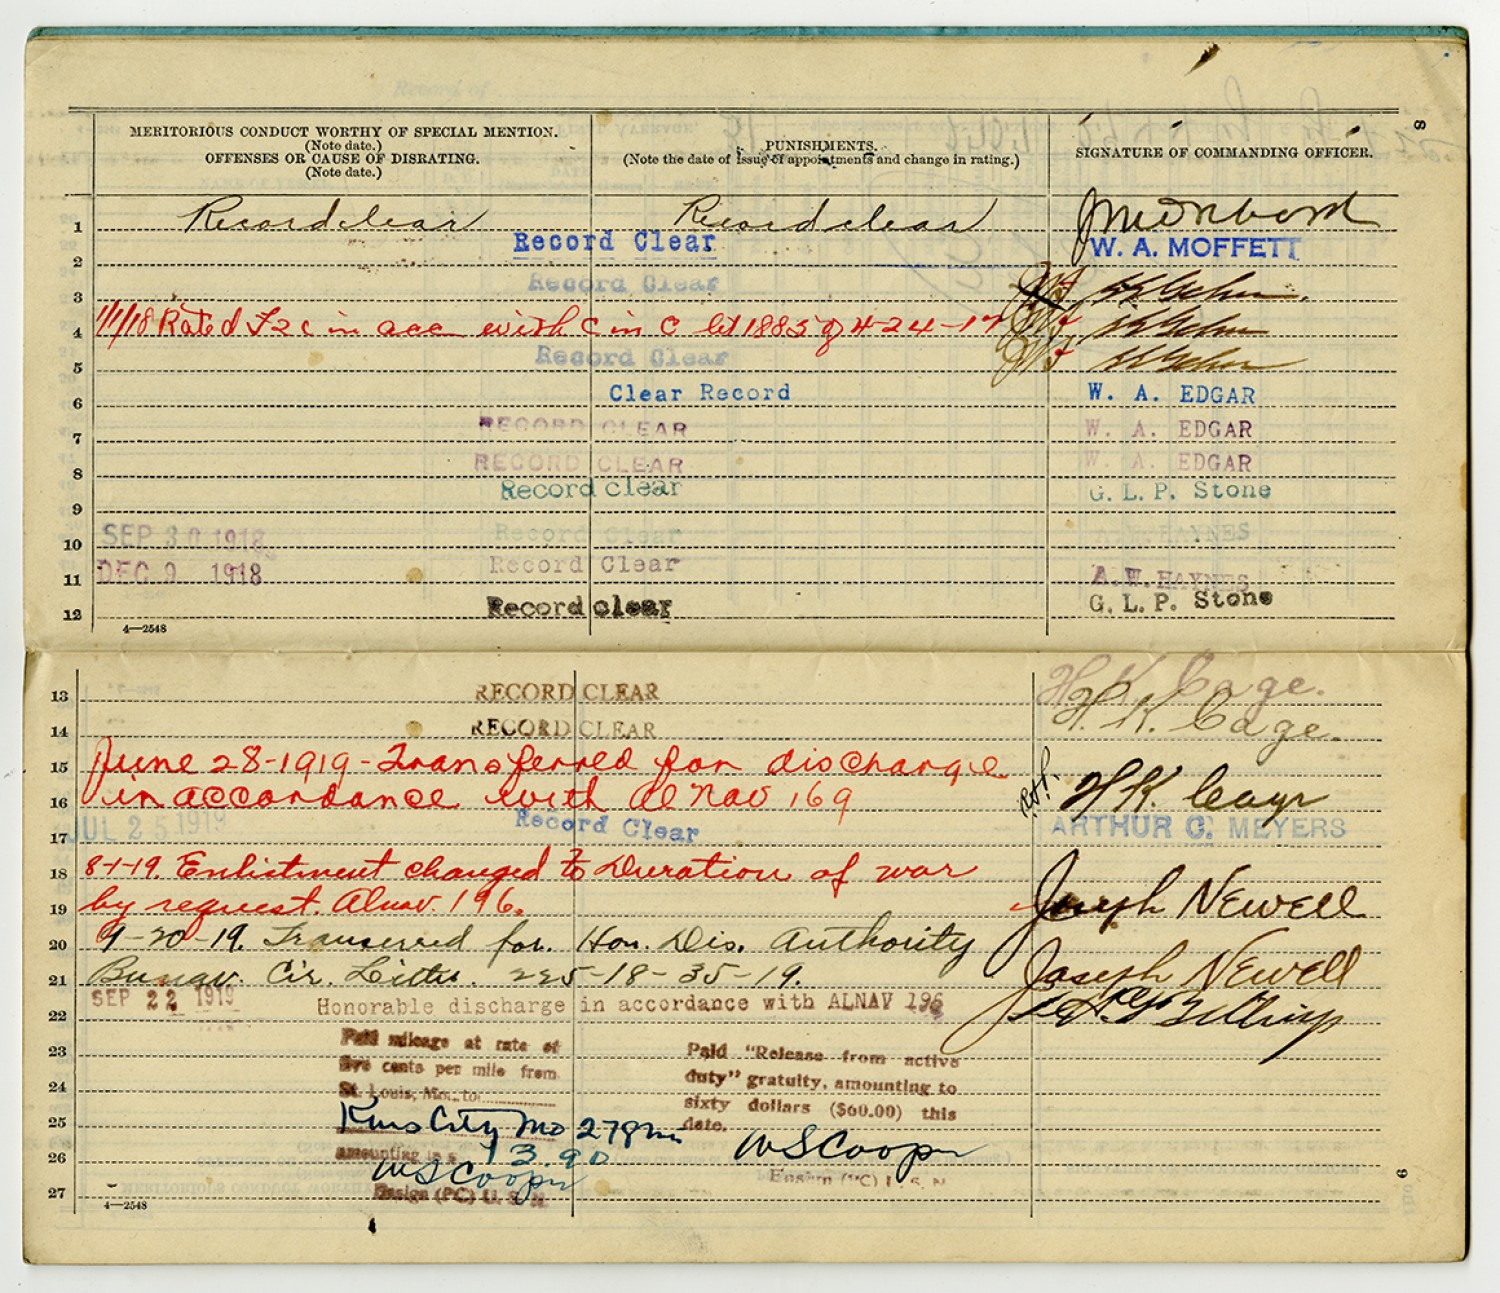 8
MERITORIOUS CONDUCT WORTHY OF SPECIAL MENTION.
(Note date.)
OFFENSES OR CAUSE OF DISRATING.
(Note date.)
PUNISHMENTS.
(Note the date of issue of appointments and change in rating.)
SIGNATURE OF COMMANDING OFFICER.
1 Record clear Record clear
Record Clear W. A. MOFFETT
2
Record Clear
3
1/1/18 Rated F2c in acc with C in C let 1885 of 4-24-17
4
Record Clear
5
Clear Record W. A. EDGAR
6
RECORD CLEAR W. A. EDGAR
7
RECORD CLEAR W. A. EDGAR
8
Record clear G. L. P. Stone
9
SEP 30 1918 Record Clear A. W. HAYNES
10
DEC 9 1918 Record Clear A. W. HAYNES
11
Record clear G. L. P. Stone
12
4—2548
13 RECORD CLEAR H. K. Cage.
14 RECORD CLEAR H. K. Cage.
June 28-1919-Transferred for discharge
15
in accordance with Al Nav 169 H K. Cage
16
JUL 25 1919 Record Clear ARTHUR C. MEYERS
17
8-1-19. Enlistment changed to Duration of war
18
by request. Alnav. 196. Joseph Newell
19
9-20-19. Transerred for. Hon. Dis. Authority
20
Bunav. Cir. Letter. 225-18-35-19. Joseph Newell
21
SEP 22 1919 Honorable discharge in accordance with ALNAV 196
22
Paid mileage at rate of
five cents per mile from
St. Louis, Mo., to
Kans City Mo 278 mi
amounting to $ 13.90
W S Cooper
Ensign (PC) U. S. N.
Paid "Release from active
duty" gratuity, amounting to
sixty dollars ($60.00) this
date.
W S Cooper
Ensign (PC) U. S. N.
23
24
25
26
27
4—2548
9